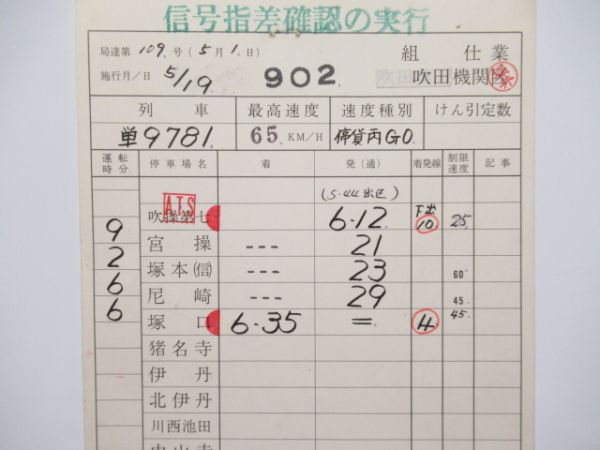 信号指差確認の実行
局達第 109. 号 (5月1.日) 組 仕業
施行月/日 5/19 902. 吹田機関区
列車 最高速度 速度種別 けん引定数
単9781. 65. KM/H 停貨丙GO.
運転時分 停車場名 着 発(通) 着発線 制限速度 記事
(5.44出区)
ATS
9 吹操第七 6-12. 下出 10 25.
2 宮操 --- 21
6 塚本(信) --- 23 60
6 尼崎 --- 29 45
塚口 6-35 = 45
猪名寺
伊丹
北伊丹
川西池田
中山寺